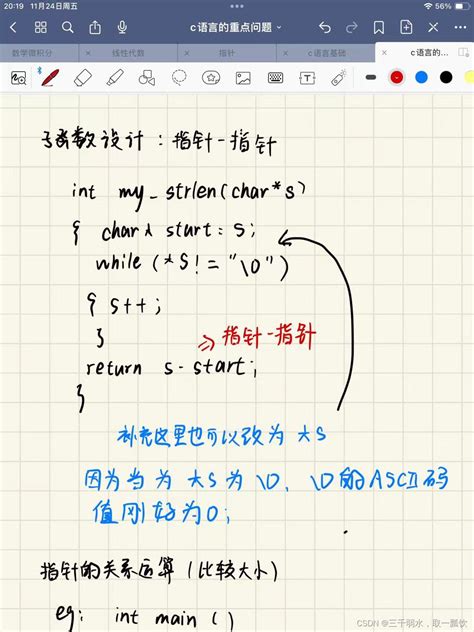 20:19 11月24日周五
56%
c语言的重点问题
数学微积分
线性代数
指针
c语言基础
c语言的...
子函数设计：指针-指针
int my_strlen(char*s)
{ char* start = s;
while (*s != "\0")
{ s++;
}
⇒指针-指针
return s-start;
}
补充这里也可以改为 *s
因为当为 *s 为 \0, \0的ASCII码
值刚好为0;
指针的关系运算 (比较大小)
eg: int main ()
CSDN @三千明水，取一瓢饮